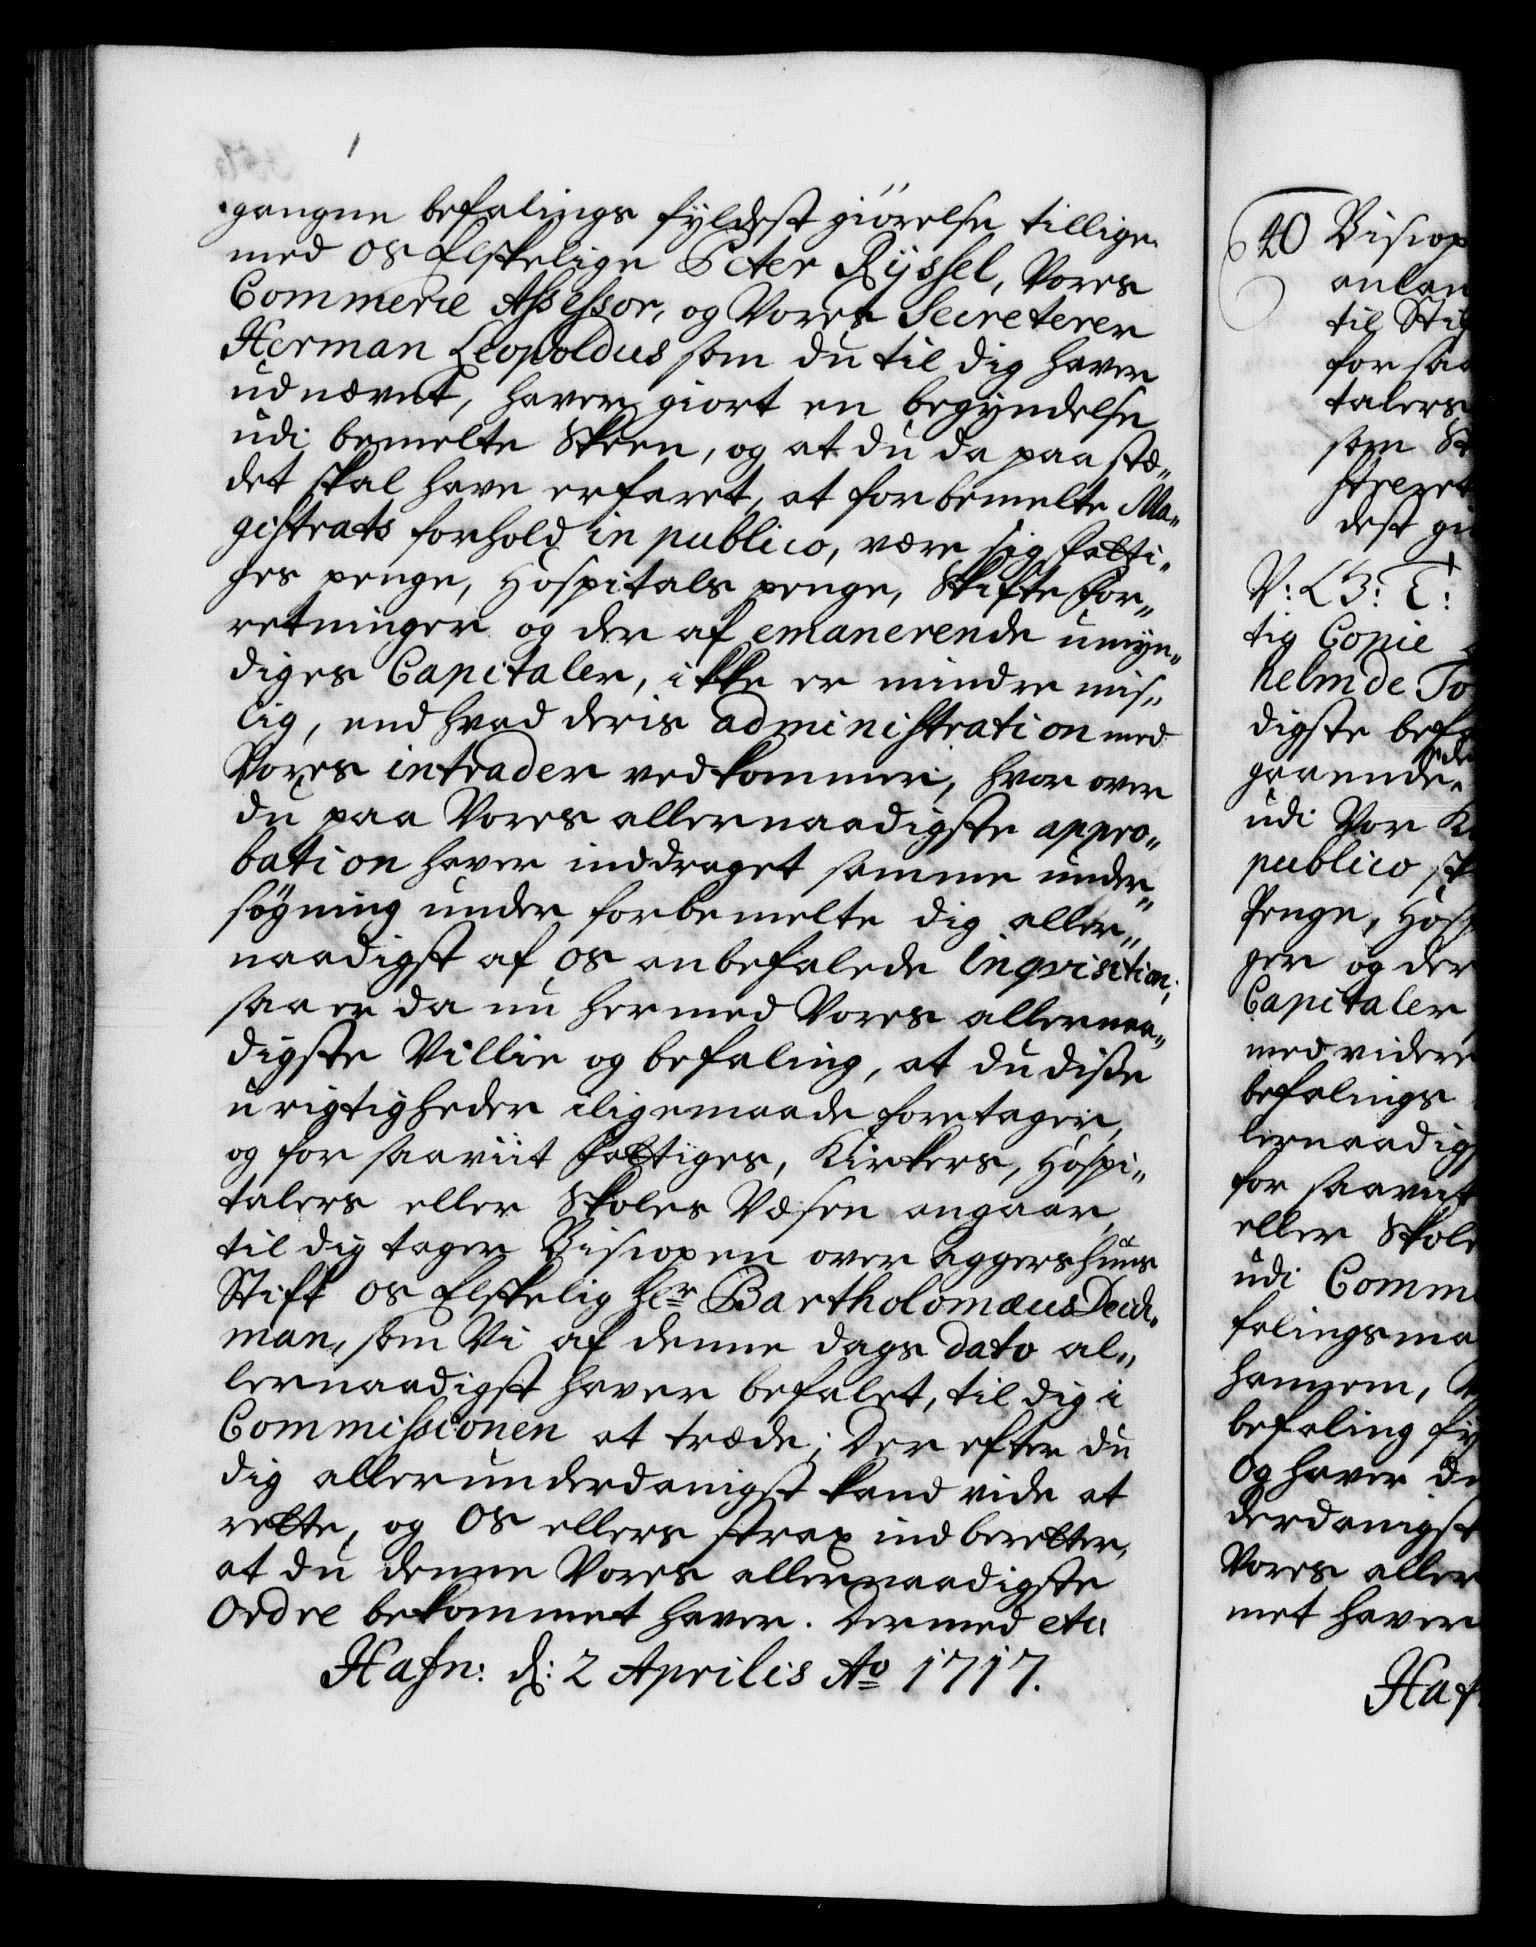 gangne befalings fyldest giörelse tillige
med os Elskelige Peter Rÿssel, Vores
Commerie Assessor, og Vores Secreterer
Herman Leopoldus som du til dig haver
udnævnt, haver giort en begyndelse
udi bemelte Skeen, og at du da paa stæ„
det skal have erfaret, at forbemelte Ma„
gistrats forhold in publico, være sig fatti„
ges penge, Hospitals penge, Skifte For„
retninger og der af emanerende umyn„
diges Capitaler, ikke er mindre mis„
lig, end hvad deris administration med
Vores intrader vedkommer, hvor over
du paa Vores allernaadigste appro„
bation haver inddraget samme under„
søgning under forbemelte dig aller„
naadigst af os anbefalede Inqvisition;
saa er da nu hermed Vores allernaa„
digste Villie og befaling, at du disse
urigtigheder iligemaade foretager,
og for saaviit fattiges, Kirkers, Hospi„
talers eller Skoles Væsen angaar,
til dig tager Biscopen over Aggershuus
Stift os Elskelig Hr. Bartholomæus Deich„
man, som Vi af denne dags dato al„
lernaadigst haver befalet, til dig i
Commissionen at træde; Der efter du
dig allerunderdanigst kand vide at
rette, og Os ellers strax indberetter,
at du denne Vores allernaadigste
Ordre bekommet haver. Dermed etc:
Hafn: d: 2 Aprilis Ao 1717.
40 Biscop
anlan
til Stif
for saa
talers
som St
streret
dest gi
V: L3: T:
tig Copie
helm de To
digste bef
gaaende
udi Vor K
publico
Penge, Hos
ger og der
Capitaler
med videre
befalings
lernaadigs
for saaviit
eller Skole
udi Comm
falingsma
hannem,
befaling fy
Og haver du
derdanigst
Vores aller
met haver
Haf